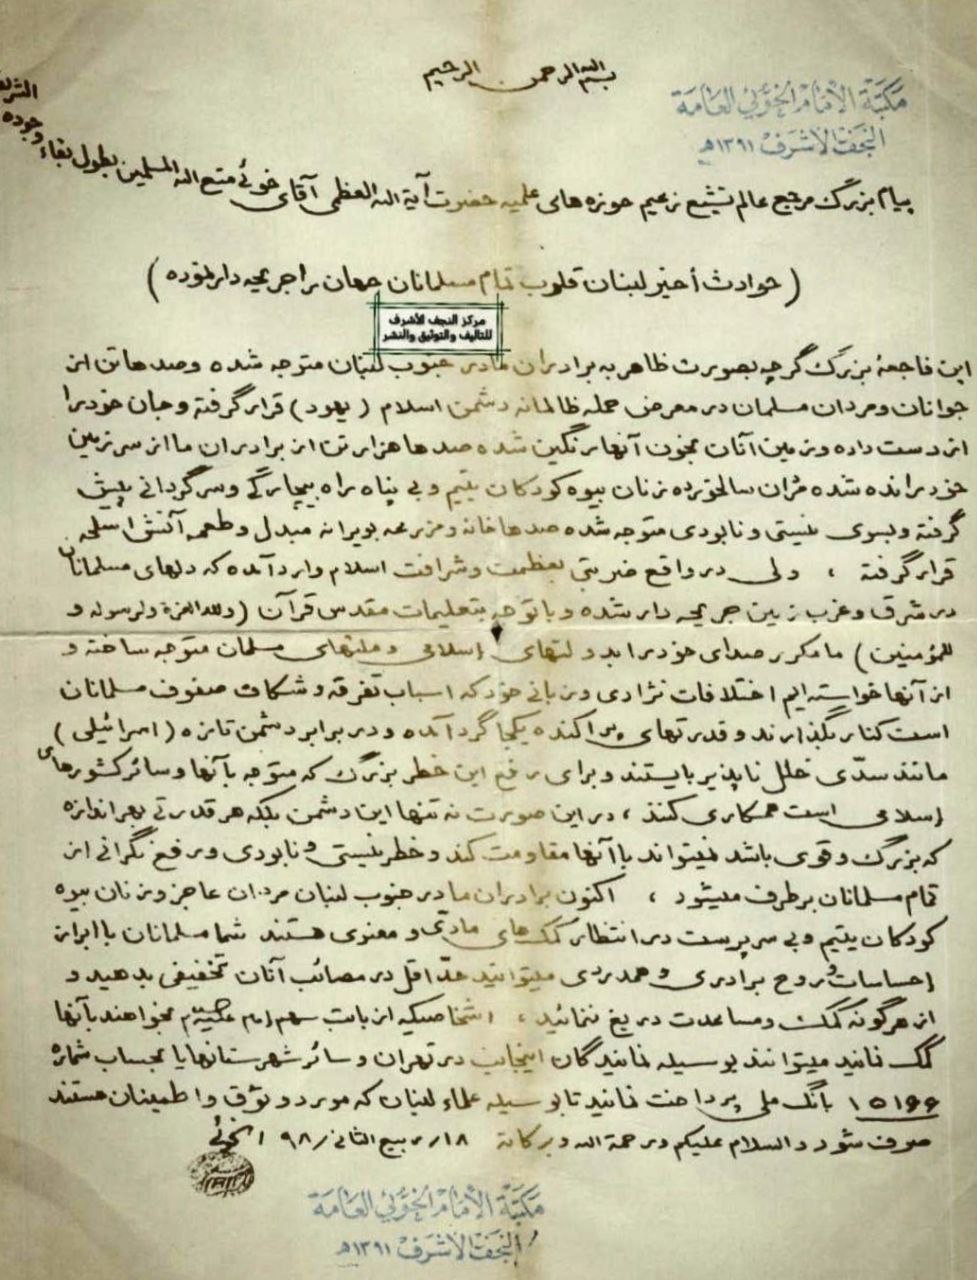 بسم الله الرحمن الرحيم
مكتبة الإمام الخوئي العامة
النجف الأشرف ١٣٩١هـ
پیام بزرگ مرجع عالم تشیع زعیم حوزه های علمیه حضرت آیة الله العظمی آقای خوئی متع الله المسلمین بطول بقاء وجوده الشریف
(حوادث أخیر لبنان قلوب تمام مسلمانان جهان را جریحه دار نموده)
مركز النجف الأشرف
للتأليف والتوثيق والنشر
این فاجعهٔ بزرگ گرچه بصورت ظاهر به برادران ما در جنوب لبنان متوجه شده وصدها تن از
جوانان ومردان مسلمان در معرض حمله ظالمانه دشمن اسلام (یهود) قرار گرفته وجان خود را
از دست داده وزمین آنان بخون آنها رنگین شده صدها هزار تن از برادران ما از سر زمین
خود رانده شده مردان سالخورده زنان بیوه کودکان یتیم و بی پناه راه بیچارگی وسرگردانی پیش
گرفته وبسوی نیستی ونابودی متوجه شده صدها خانه ومزرعه بویرانه مبدل وطعمه آتش اسلحه
قرار گرفته ، ولی در واقع ضربتی بعظمت وشرافت اسلام وارد آمده که دلهای مسلمانان
در شرق وغرب زمین جریحه دار شده و با توجه بتعلیمات مقدس قرآن (ولله العزة ولرسوله و
للمؤمنین) ما مکرر صدای خود را بدولتهای اسلامی وملتهای مسلمان متوجه ساخته و
از آنها خواسته ایم اختلافات نژادی وزبانی خود که اسباب تفرقه وشکاف صفوف مسلمانان
است کنار بگذارند وقدرتهای پراکنده یکجا گرد آمده ودر برابر دشمن تازه (اسرائیلی)
مانند سدّی خلل ناپذیر بایستند وبرای رفع این خطر بزرگ که متوجه بآنها وسائر کشورهای
اسلامی است همکاری کنند ، در این صورت نه تنها این دشمن بلکه هر قدرتی بهر اندازه
که بزرگ وقوی باشد نمیتواند با آنها مقاومت کند وخطر نیستی ونابودی ورفع نگرانی از
تمام مسلمانان برطرف میشود ، اکنون برادران ما در جنوب لبنان مردان عاجز وزنان بیوه
کودکان یتیم وبی سرپرست در انتظار کمک های مادّی و معنوی هستند شما مسلمانان با ابراز
احساسات وروح برادری و همدردی میتوانید حدّاقل در مصائب آنان تخفیفی بدهید و
از هرگونه کمک ومساعدت دریغ ننمائید ، اشخاصیکه از بابت سهم امام علیه السلام بخواهند بآنها
کمک نمایند میتوانند بوسیله نمایندگان اینجانب در تهران وسائر شهرستانها یا بحساب شماره
١٥١٦٦ بانگ ملی پرداخت نمایند تا بوسیله علماء لبنان که مورد وثوق واطمینان هستند
صرف شود والسلام علیکم ورحمة الله وبرکاته ١٨/ربیع الثانی/٩٨ الخوئی
مكتبة الإمام الخوئي العامة
النجف الأشرف ١٣٩١هـ